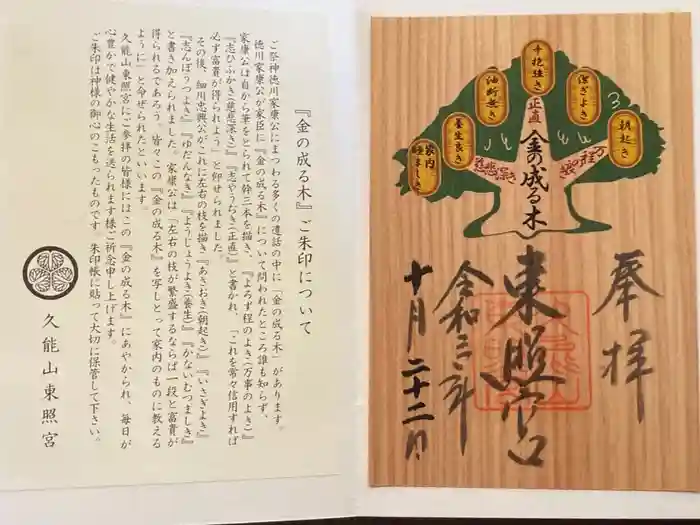 奉拝
東照宮
令和三年
十月二十二日
金の成る木
正直
慈悲深き
万程よき
朝起き
潔ぎよき
辛抱強き
油断無き
養生良き
家内睦ましき
『金の成る木』ご朱印について
ご祭神徳川家康公にまつわる多くの遺話の中に「金の成る木」があります。
徳川家康公が家臣に『金の成る木』について問われたところ誰も知らず、
家康公は自から筆をとられて幹三本を描き、『よろず程のよき(万事のよき)』
『志ひふかき(慈悲深き)』『志やうぢき(正直)』と書かれ、「これを常々信用すれば
必ず富貴が得られよう」と仰せられました。
その後、細川忠興公がこれに左右の枝を描き『あさおき(朝起き)』『いさぎよき』
『志んぼうつよき』『ゆだんなき』『ようじょうよき(養生)』『かないむつましき』
と書き加えられました。家康公は「左右の枝が繁盛するならば一段と富貴が
得られるであろう。皆々この『金の成る木』を写しとって家内のものに教える
ように」と命ぜられたといいます。
久能山東照宮にご参拝の皆様にはこの『金の成る木』にあやかられ、毎日が
心豊かで健やかな生活を送られます様ご祈念申し上げます。
ご朱印は神様の御心のこもったものです　朱印帳に貼って大切に保管して下さい。
久能山東照宮